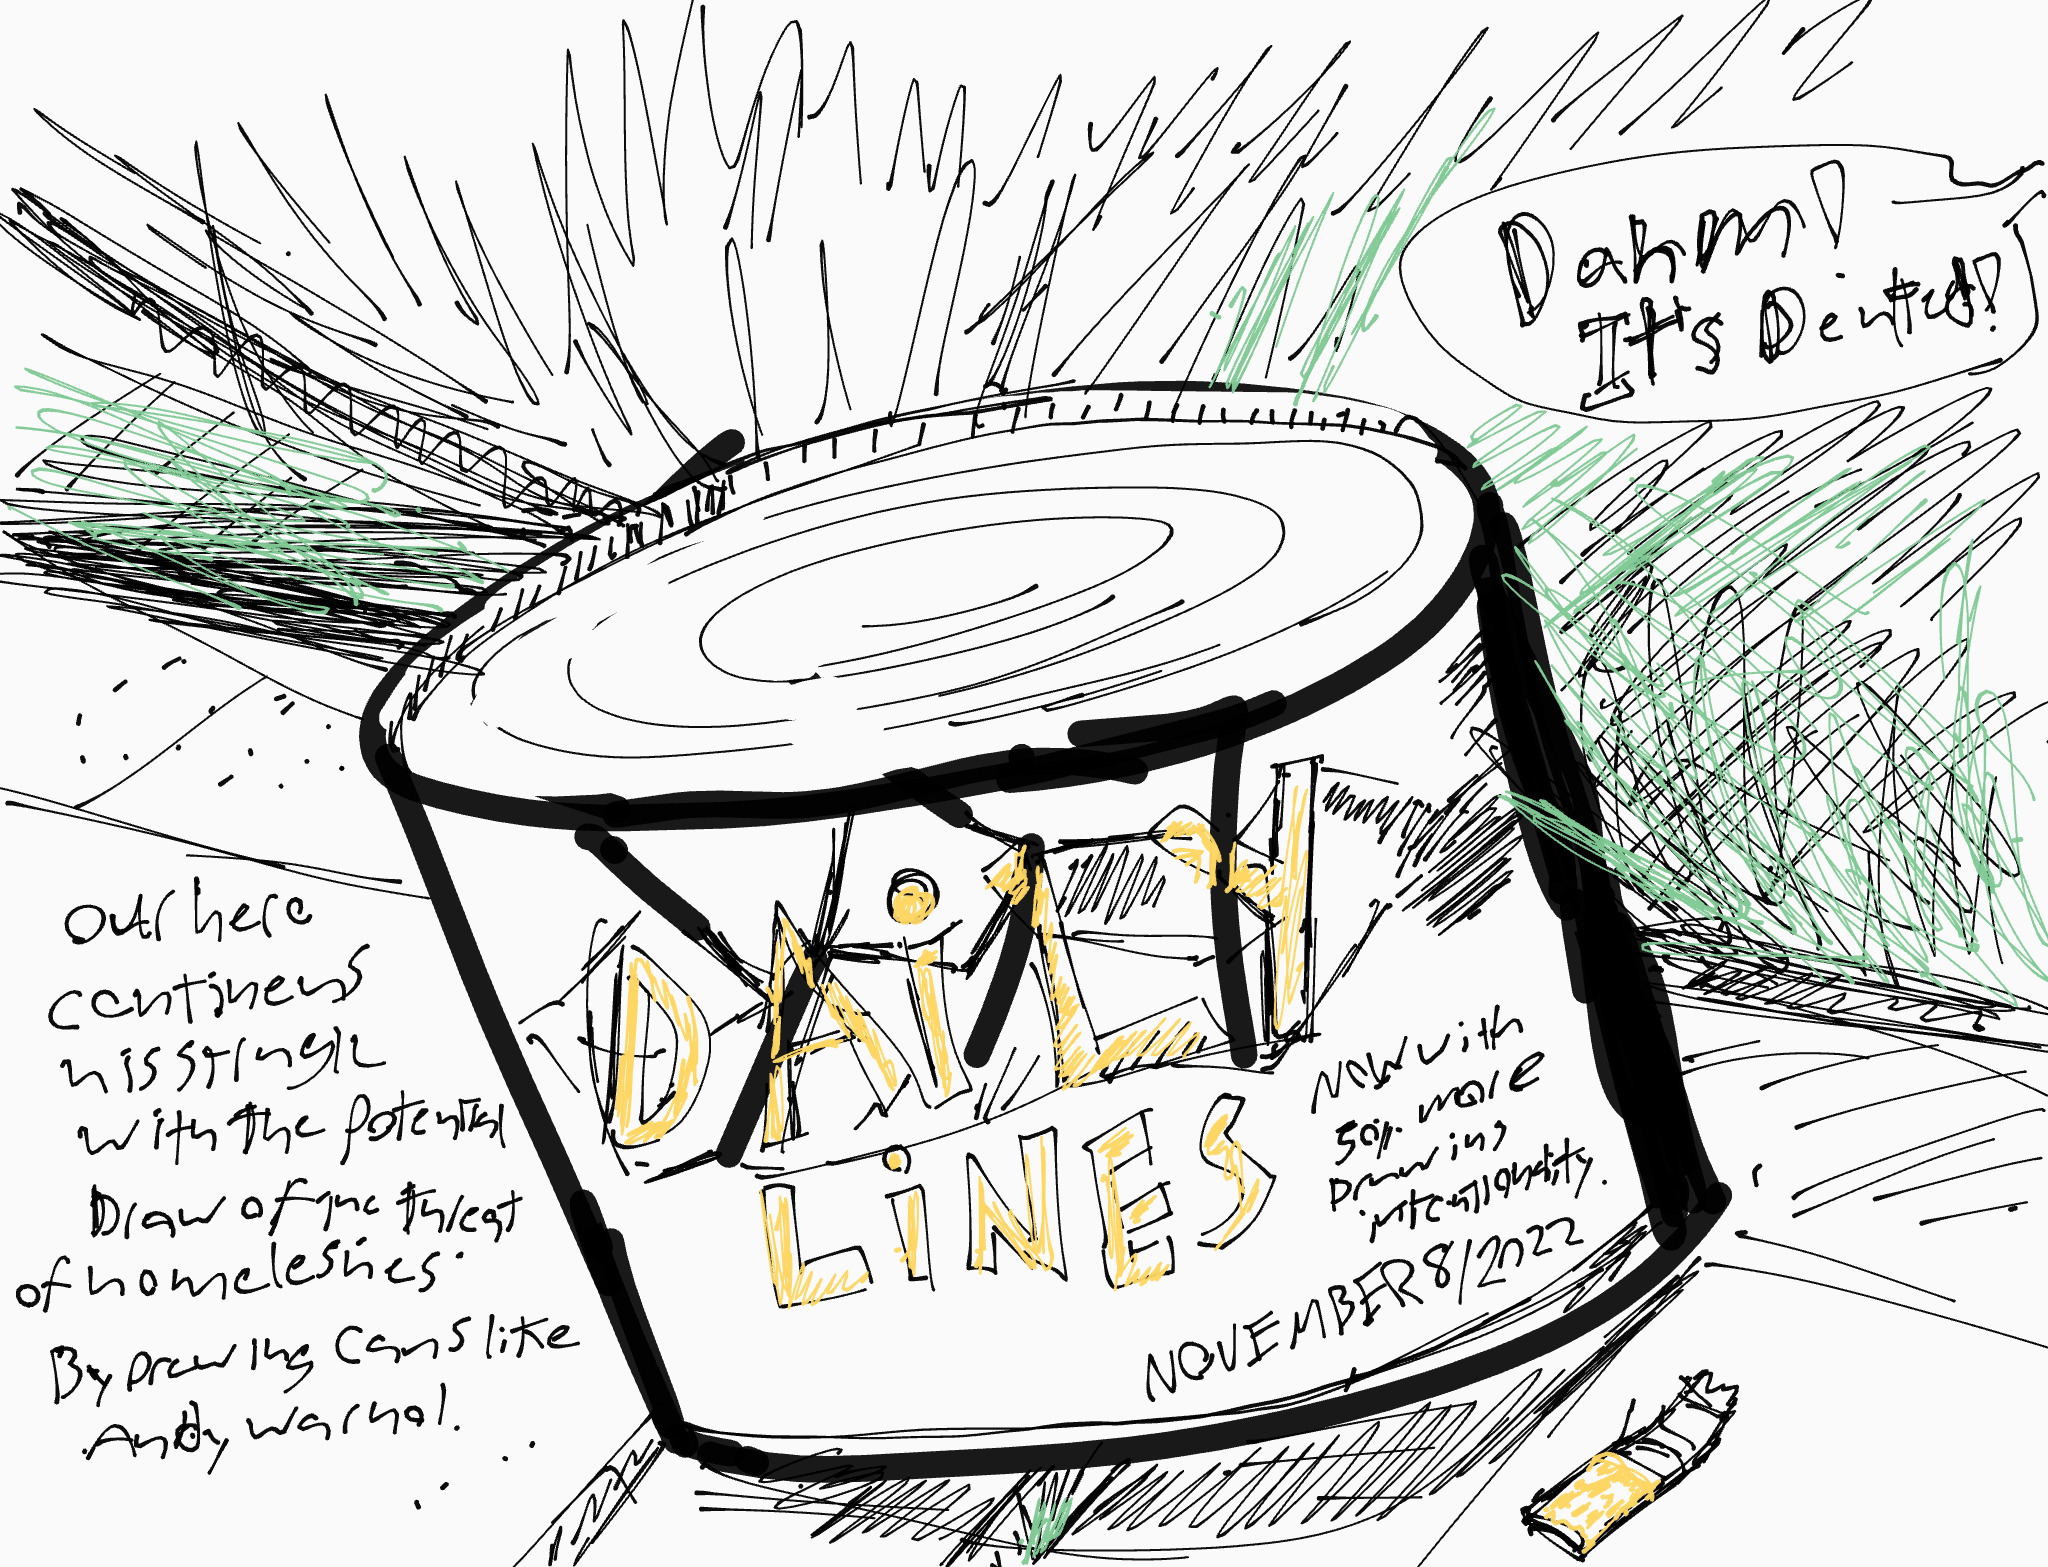 Dahm!
It's Dented!
DAiLY
LiNES
NOW with
50% more
Drawing
intentionality.
NOVEMBER 8/2022
Our hero
continues
his struggle
with the potential
Draw of the threat
of homelesnes.
By Drawing Cans like
Andy Warhol.